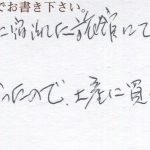 でお書き下さい。
に宿泊した旅館にて
ったので、土産に買